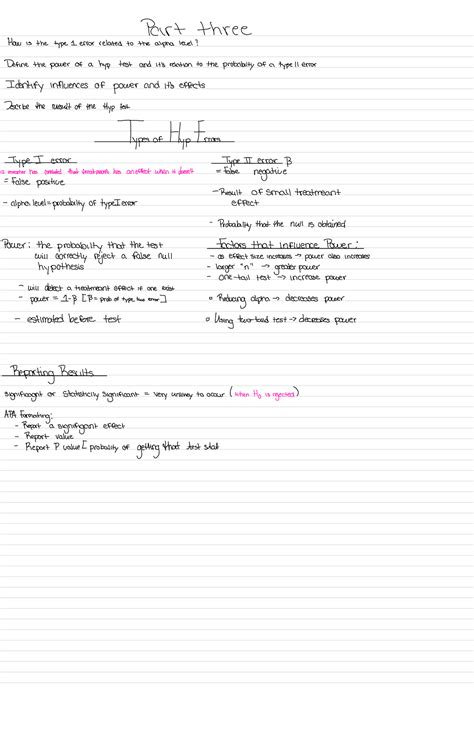 Part three
How is the type 1 error related to the alpha level?
Define the power of a hyp test and it's relation to the probability of a type II error
Identify influences of power and it's effects
Describe the result of the Hyp test
Types of Hyp Errors
Type I error
a researcher has concluded that treatment has an effect when it doesn't
= false positive
- alpha level = probability of type I error
Type II error β
= false negative
- Result of small treatment effect
- Probability that the null is obtained
Power: the probability that the test
will correctly reject a false null
hypothesis
- will detect a treatment effect if one exist
- power = 1-β [β = prob of type two error]
- estimated before test
Factors that influence Power:
- as effect size increases → power also increases
- larger "n" → greater power
- one-tail test → increase power
o Reducing alpha → decreases power
o Using two-tail test → decreases power
Reporting Results
significant or Statistically Significant = very unlikely to occur (when H₀ is rejected)
APA Formatting:
- Report a significant effect
- Report value
- Report P value [ probability of getting that test stat